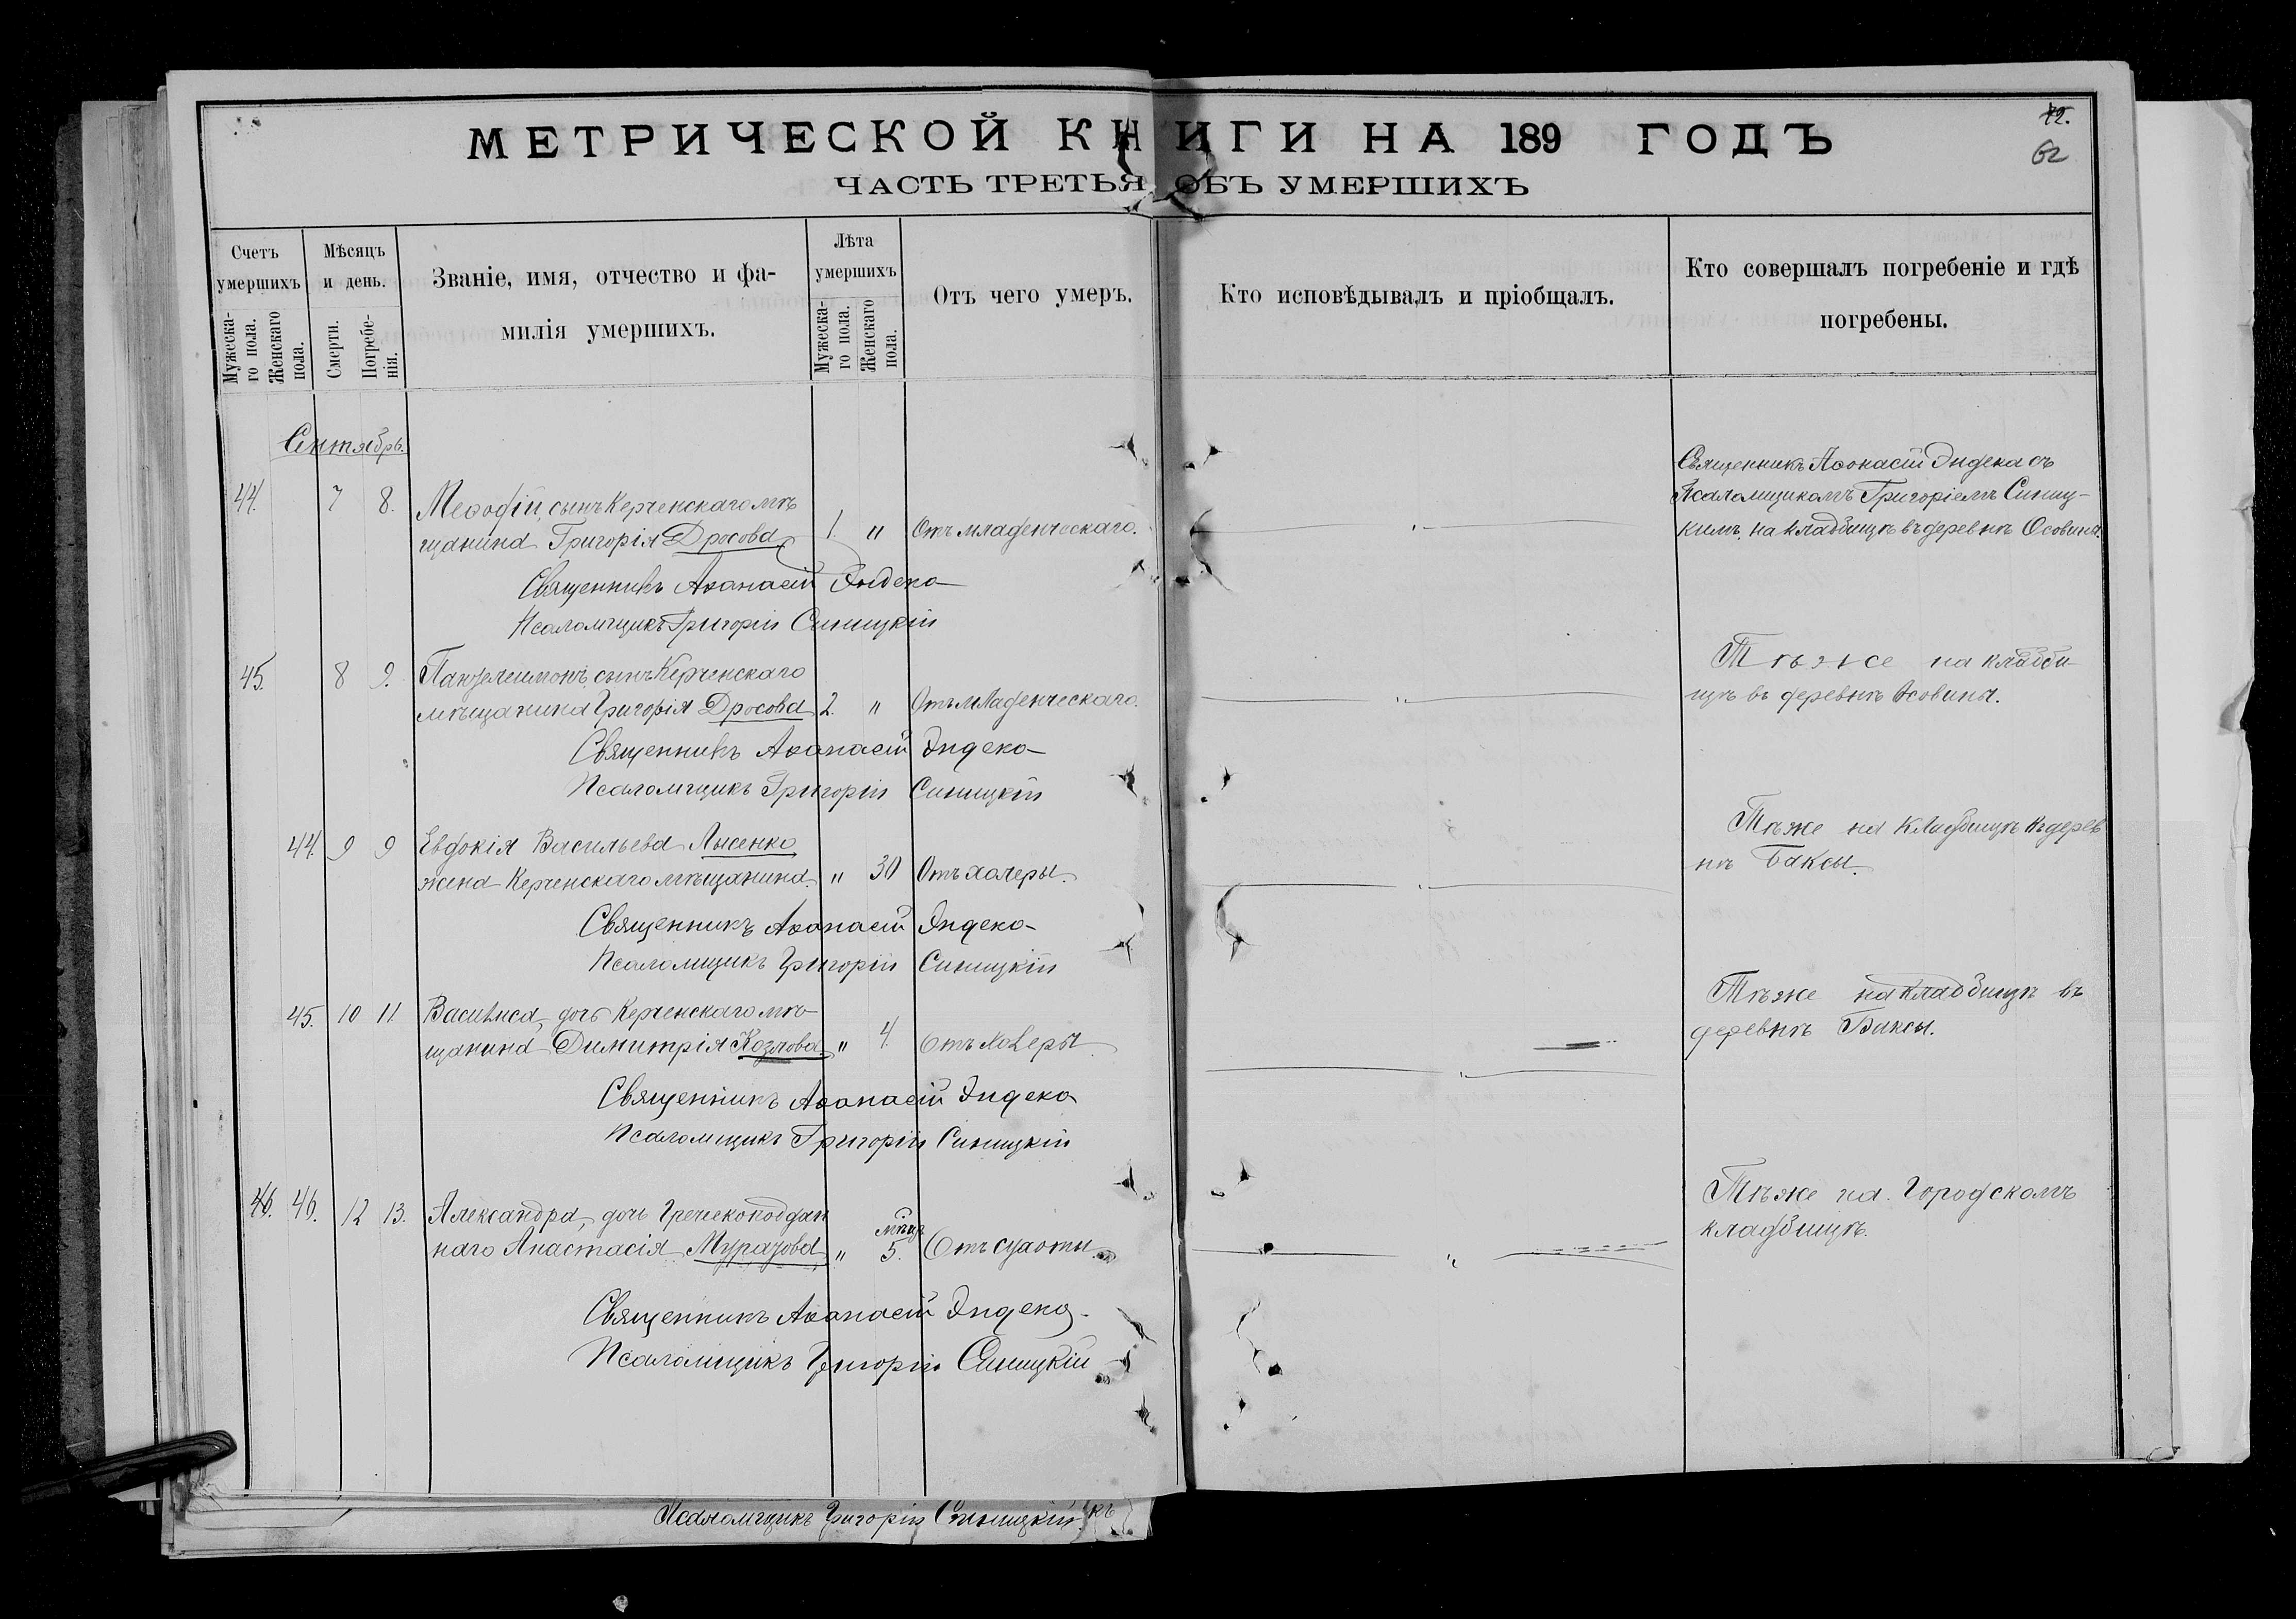 МЕТРИЧЕСКОЙ КНИГИ НА 189 ГОДЪ
ЧАСТЬ ТРЕТЬЯ ОБЪ УМЕРШИХЪ
72.
62
Счетъ умершихъ
Мужеска-го пола.
Женскаго пола.
Мѣсяцъ и день.
Смерти.
Погребе-нія.
Званіе, имя, отчество и фа-
милія умершихъ.
Лѣта умершихъ
Мужеска-го пола.
Женскаго пола.
Отъ чего умеръ.
Кто исповѣдывалъ и пріобщалъ.
Кто совершалъ погребеніе и гдѣ
погребены.
Сентябрь.
44. 7 8. Меѳодій, сынъ Керченскаго мѣ-
щанина Григорія Дросова 1. " Отъ младенческаго.
Священникъ Аѳанасій Эндека съ
Псаломщикомъ Григоріемъ Синиц-
кимъ, на кладбищѣ въ деревнѣ Осовины.
Священникъ Аѳанасій Эндека
Псаломщикъ Григорій Синицкій
45. 8 9. Пантелеимонъ, сынъ Керченскаго
мѣщанина Григорія Дросова 2. " Отъ младенческаго.
Тѣ же на кладби-
щѣ въ деревнѣ Осовины.
Священникъ Аѳанасій Эндека
Псаломщикъ Григорій Синицкій
44. 9 9 Евдокія Васильева Лысенко
жена Керченскаго мѣщанина. " 30 Отъ холеры.
Тѣ же на кладбищѣ въ дерев
нѣ Баксы.
Священникъ Аѳанасій Эндека
Псаломщикъ Григорій Синицкій
45. 10 11. Василиса, дочь Керченскаго мѣ-
щанина Димитрія Козлова " 4. Отъ холеры
Тѣ же на кладбищѣ въ
деревнѣ Баксы.
Священникъ Аѳанасій Эндека
Псаломщикъ Григорій Синицкій
46. 46. 12 13. Александра, дочь Греческоподдан
наго Анастасія Муразова " мѣця 5. Отъ сухоты
Тѣ же на Городскомъ
кладбищѣ.
Священникъ Аѳанасій Эндека
Псаломщикъ Григорій Синицкій
Псаломщикъ Григорій Синицкій
къ